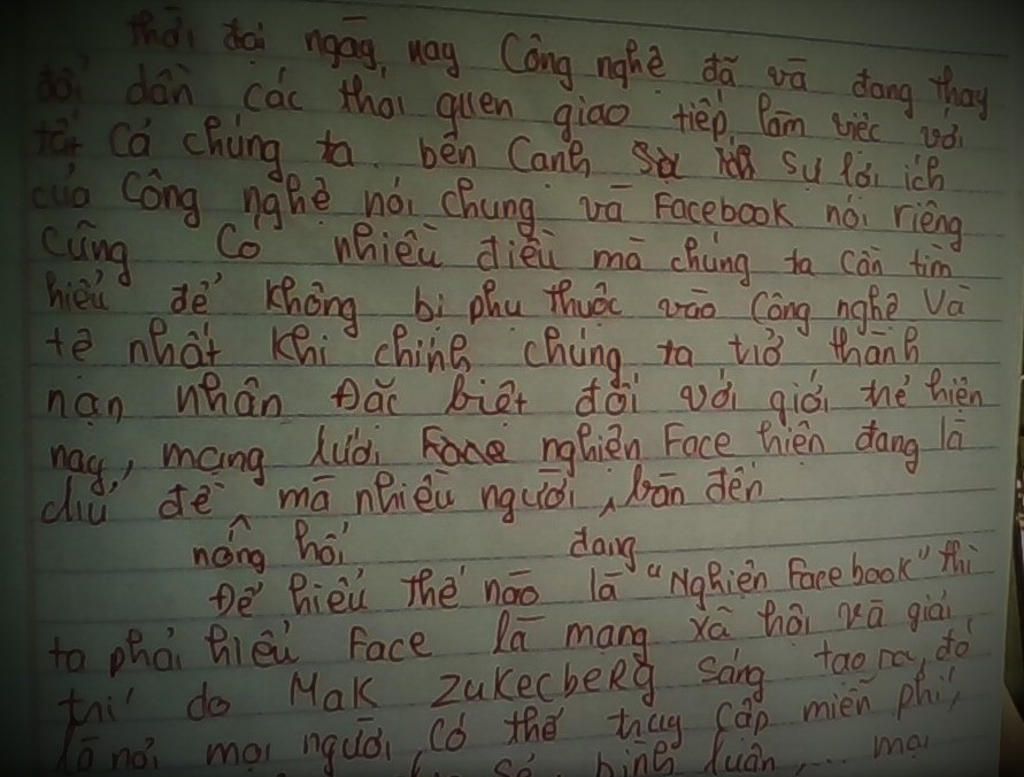 Thời đại ngày nay Công nghệ đã và đang thay
đổi dần các thoi quen giao tiếp, làm việc với
tất cả chúng ta. bên Cạnh sự lới ích
của Công nghệ nói chung và Facebook nói riêng
cũng Có nhiều điều mà chúng ta cần tìm
hiểu để không bị phu thuộc vào Công nghệ Và
tệ nhất khi chính chúng ta trở thành
nạn nhân Đặc biệt đối với giới trẻ hiện
nay, mạng lưới nghiện Face hiện đang là
chủ đề nóng hổi mà nhiều người đang bàn đến
Để hiểu thế nào là "Nghiện Facebook" thì
ta phải hiểu Face là mạng xã hội và giải
trí do Mak Zukecberg sáng tạo ra, đó
là nơi mọi người có thể truy cập miễn phí,
bình luận,... mọi